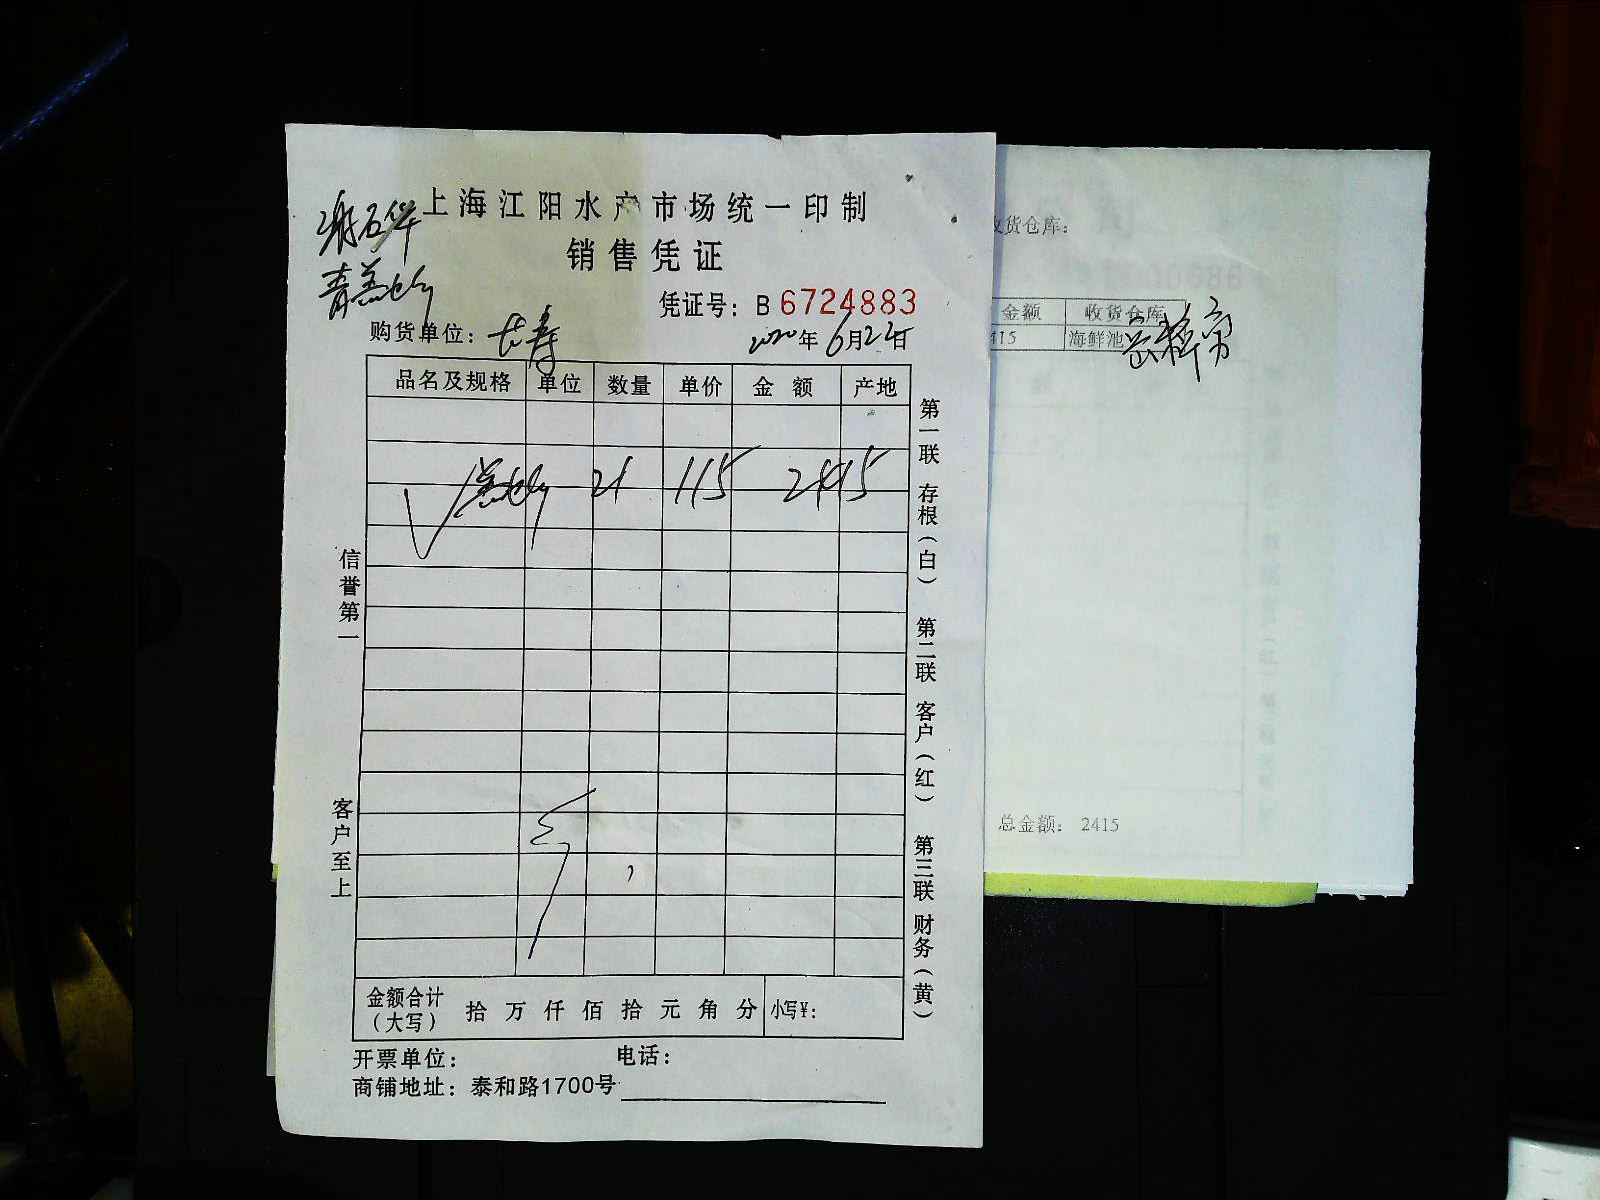 上海江阳水产市场统一印制
销售凭证
凭证号：B 6724883
购货单位：长寿
2020年6月22日
品名及规格 单位 数量 单价 金额 产地
21 115 2415
信誉第一
客户至上
第一联 存根（白） 第二联 客户（红） 第三联 财务（黄）
金额合计（大写） 拾 万 仟 佰 拾 元 角 分 小写￥：
开票单位： 电话：
商铺地址：泰和路1700号
收货仓库：
金额 收货仓库
415 海鲜池
总金额： 2415